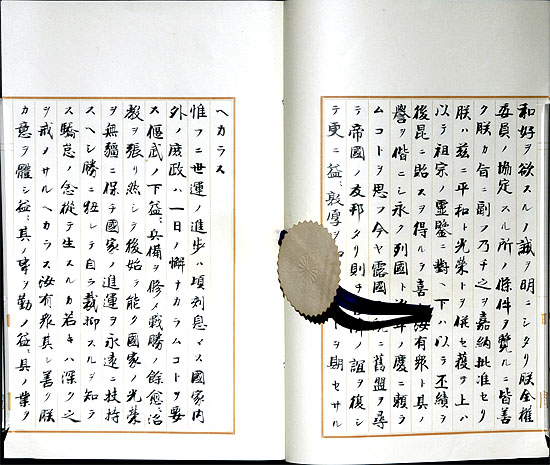 和好ヲ欲スルノ誠ヲ明ニシタリ朕全權
委員ノ協定スル所ノ條件ヲ覽ルニ皆善
ク朕カ旨ニ副フ乃チ之ヲ嘉納批准セリ
朕ハ茲ニ平和ト光榮トヲ併セ獲テ上ハ
以テ祖宗ノ靈鑒ニ對ヘ下ハ以テ丕績ヲ
後昆ニ貽スヲ得ルヲ喜 汝有衆ト其ノ
譽ヲ偕ニシ永ク列國ト ノ慶ニ賴ラ
ムコトヲ思フ今ヤ露國 ニ舊盟ヲ尋
テ帝國ノ友邦タリ則チ ノ誼ヲ復シ
テ更ニ益〻敦厚ヲ ヲ期セサル
ヘカラス
惟フニ世運ノ進歩ハ頃刻息マス國家内
外ノ庶政ハ一日ノ懈ナカラムコトヲ要
ス偃武ノ下益〻兵備ヲ修メ戰勝ノ餘愈〻治
教ヲ張リ然シテ後始テ能ク國家ノ光榮
ヲ無疆ニ保チ國家ノ進運ヲ永遠ニ扶持
スヘシ勝ニ狃レテ自ラ裁抑スルヲ知ラ
ス驕怠ノ念從テ生スルカ若キハ深ク之
ヲ戒メサルヘカラス汝有衆其レ善ク朕
カ意ヲ體シ益〻其ノ事ヲ勤メ益〻其ノ業ヲ